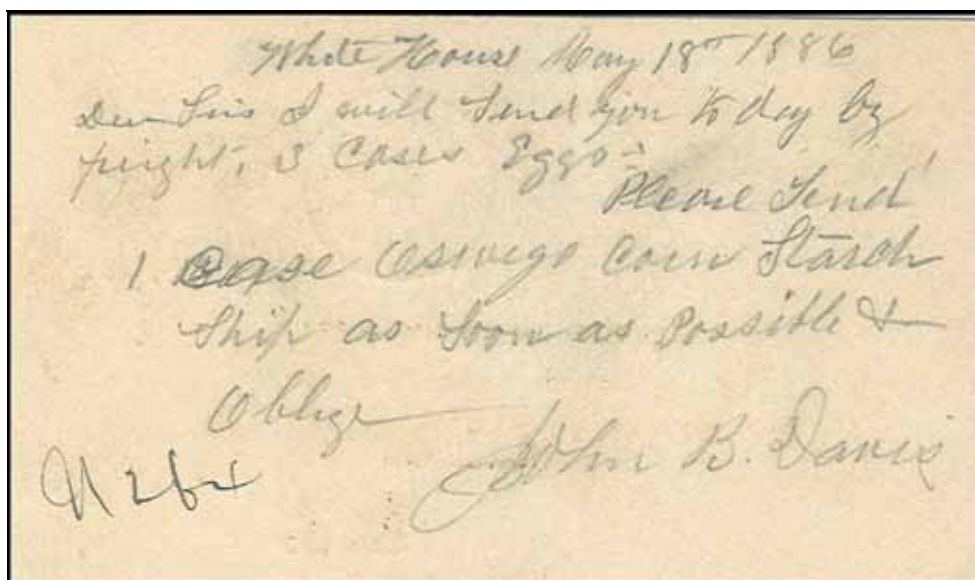 White House May 18th 1886
Dear Sirs I will Send you to day by
freight, 3 Cases Eggs.
Please Send
1 Case Oswego Corn Starch
Ship as Soon as Possible &
Oblige
John B. Davis